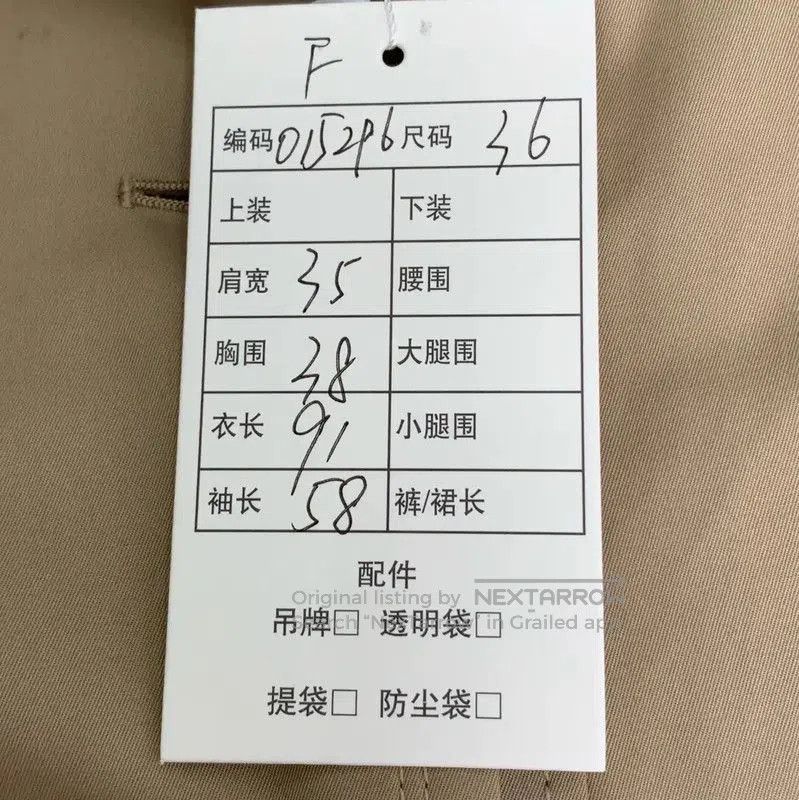 F
编码 015296 尺码 36
上装 下装
肩宽 35 腰围
胸围 38 大腿围
衣长 91 小腿围
袖长 58 裤/裙长
配件
Original listing by NEXTARROW
吊牌□ 透明袋□
Search "Nextarrow" in Grailed app
提袋□ 防尘袋□